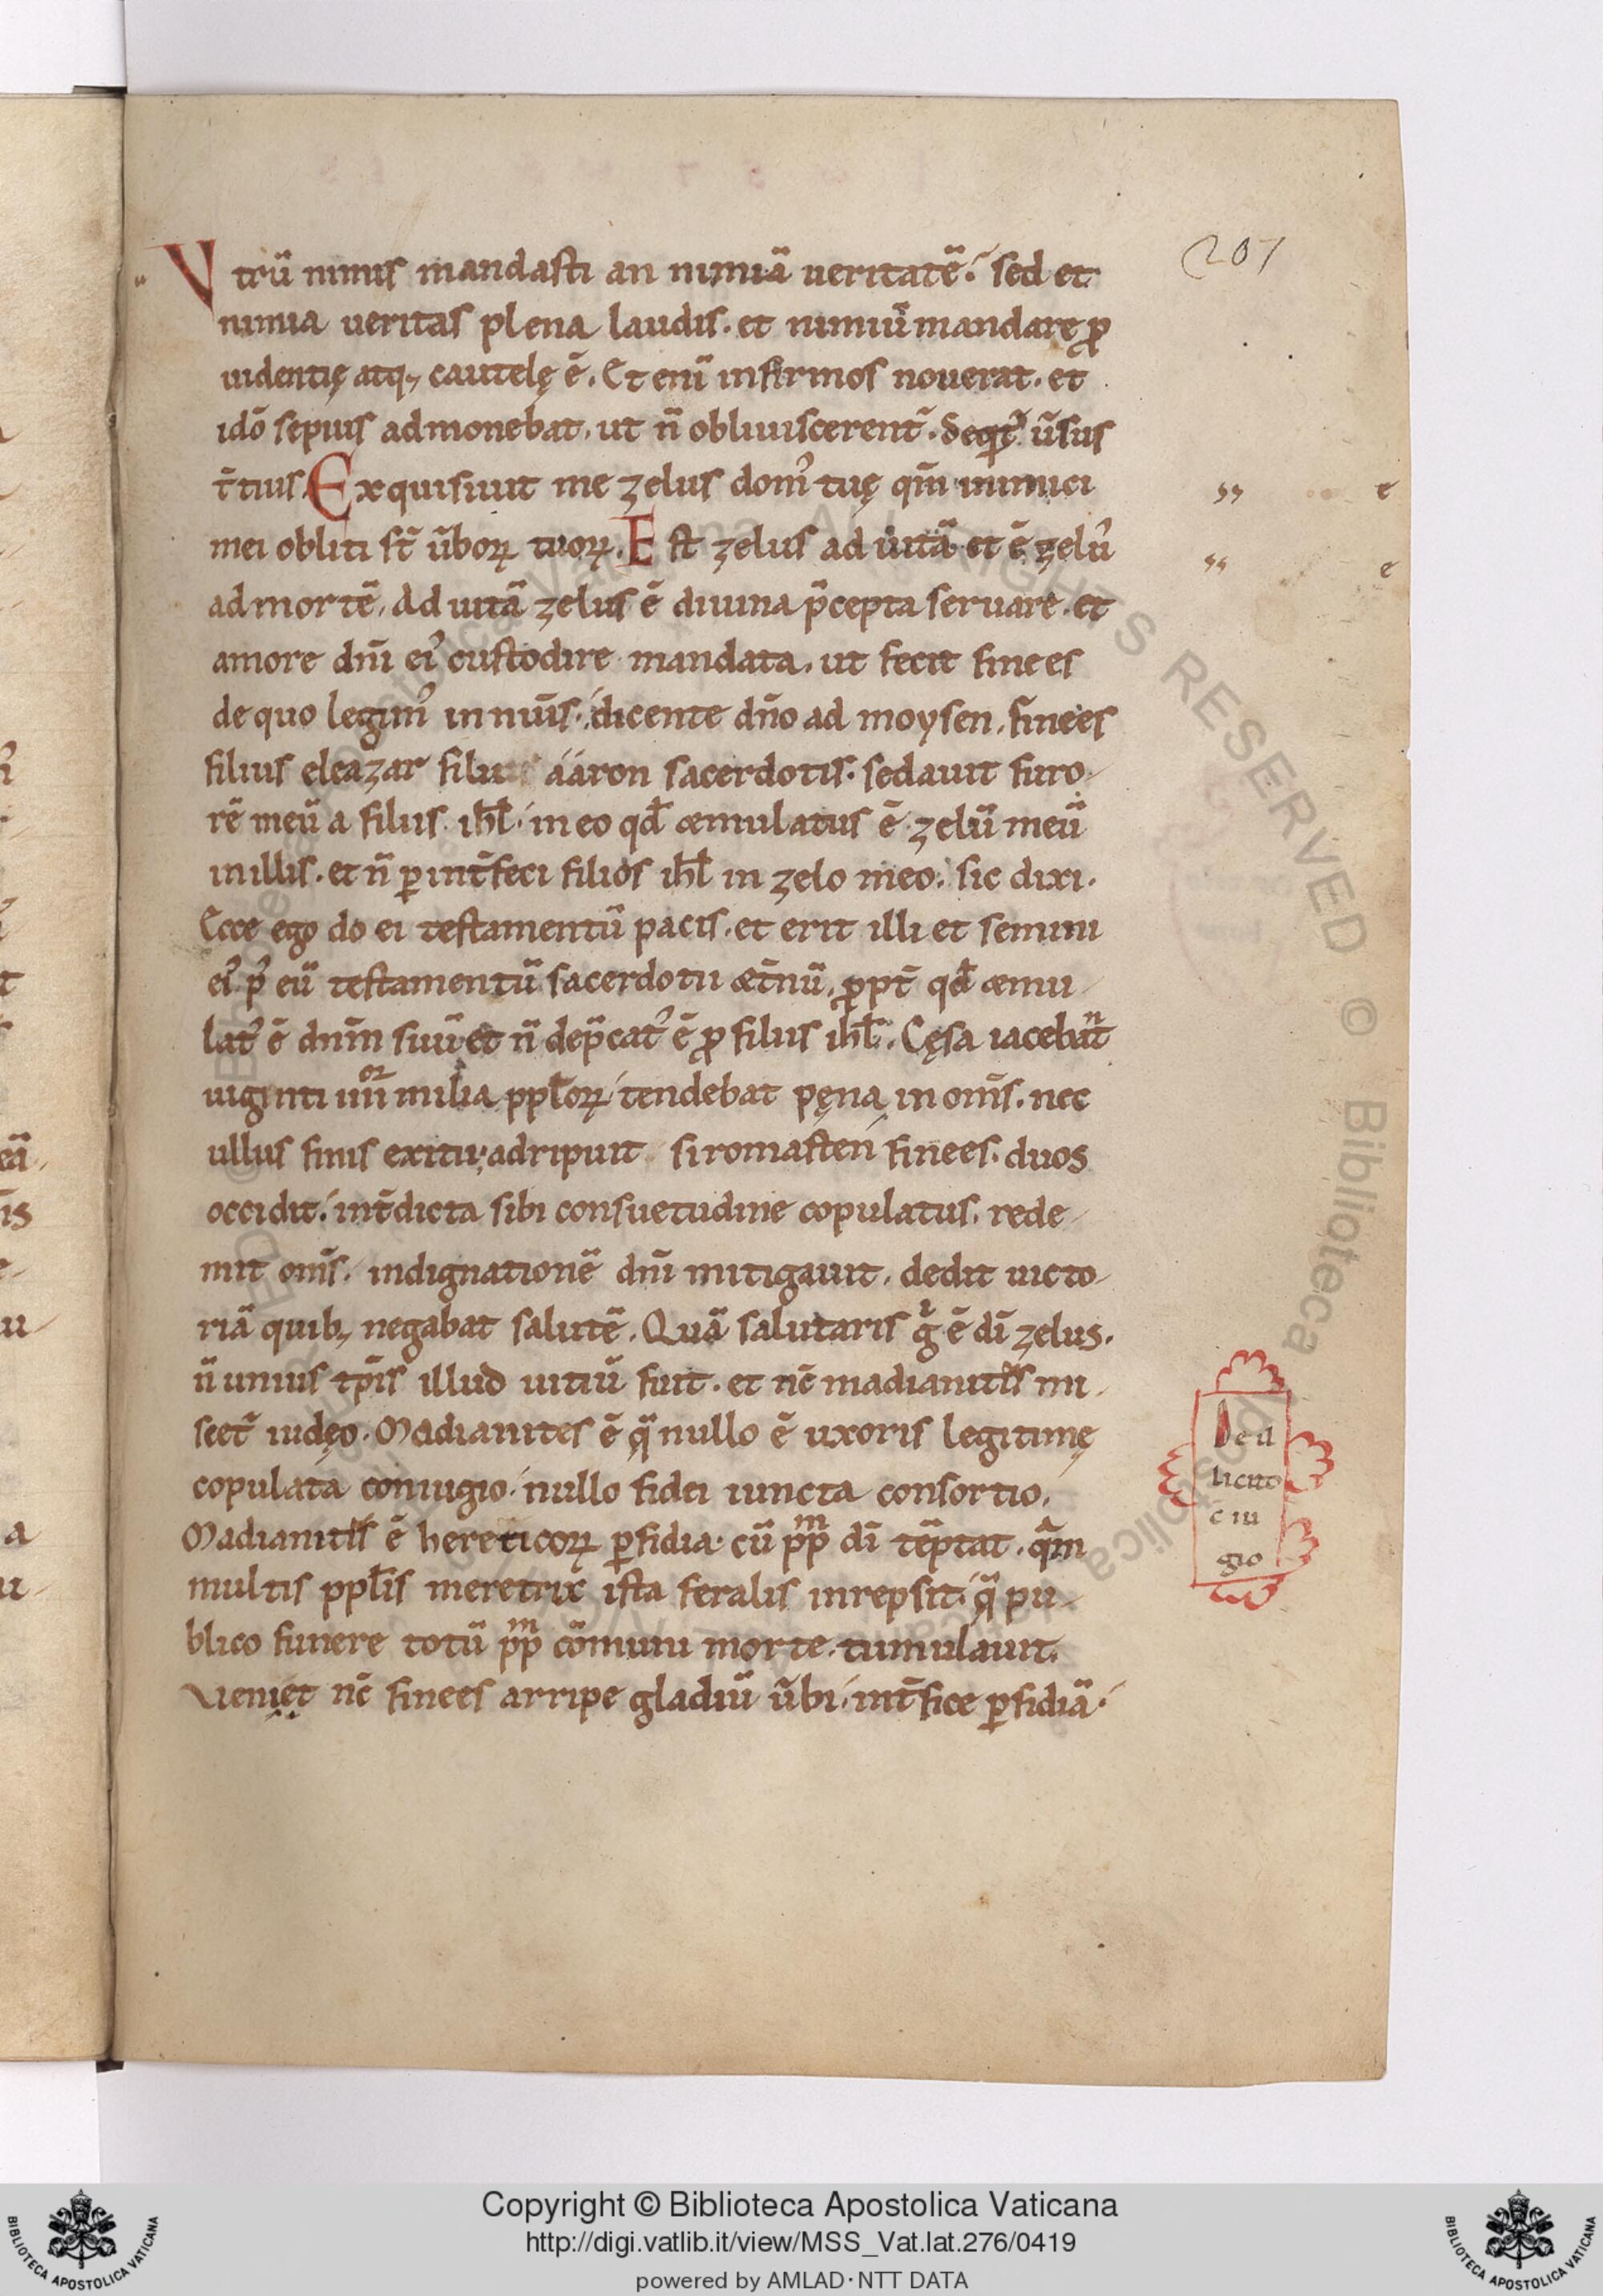 207
Vtrū nimis mandasti an nimiā ueritatē. sed et
nimia ueritas plena laudis. et nimiū mandare ꝓ
uidentię atq; cautelę ē. Et enī infirmos nouerat. et
idō sepius admonebat. ut n̄ obliuiscerent̄. Seqt᷒ ūsus
t̄tius. Exquisiuit me zelus dom᷒ tuę qm̄ inimici
mei obliti st̄ ūboꝝ tuoꝝ. Est zelus ad uitā et ē zelu᷒
ad mortē. Ad uitā zelus ē diuina p̄cepta seruare. et
amore dn̄i ei᷒ custodire mandata. ut fecit finees
de quo legim᷒ in nūis. dicente dn̄o ad moysen. finees
filius eleazar filius aaron sacerdotis. sedauit furo-
rē meū a filiis ihl̄. in eo qd̄ æmulatus ē zelū meū
in illis. et n̄ ꝑint̄feci filios ihl̄ in zelo meo. sic dixi.
Ecce ego do ei testamentū pacis. et erit illi et semini
ei᷒ p᷒ eū testamentū sacerdotii æt̄nū. ꝓpt̄ qd̄ æmu-
lat᷒ ē dnm̄ suū et n̄ dep̄cat᷒ ē ꝓ filiis ihl̄. Cęsa iacebant̄
uiginti iiiior milia ppl̄oꝝ tendebat pęna in om̄s. nec
ullus finis exitii; adripuit siromasten finees. duos
occidit. int̄dicta sibi consuetudine copulatus. rede-
mit om̄s. indignationē dn̄i mitigauit. dedit uicto-
riā quib; negabat salutē. Quā salutaris gͥ ē dī zelus.
n̄ unius tp̄is illud uitiū fuit. et nc̄ madianitis mi-
scet̄ iudęo. Madianites ē q̄ nullo ē uxoris legitimę
copulata coniugio. nullo fidei iuncta consortio.
Madianitis ē hereticoꝝ ꝑfidia. cū ppm dī tēptat. qᷓm
multis ppl̄is meretrix ista feralis inrepsit. q̄ pu-
blico funere totū ppm cōmuni morte tumulauit.
Veniet nc̄ finees arripe gladiū ūbi. int̄fice ꝑfidiā.
De il
licito
c̄ iu
gio
Copyright © Biblioteca Apostolica Vaticana
http://digi.vatlib.it/view/MSS_Vat.lat.276/0419
powered by AMLAD·NTT DATA
BIBLIOTECA APOSTOLICA VATICANA
BIBLIOTECA APOSTOLICA VATICANA